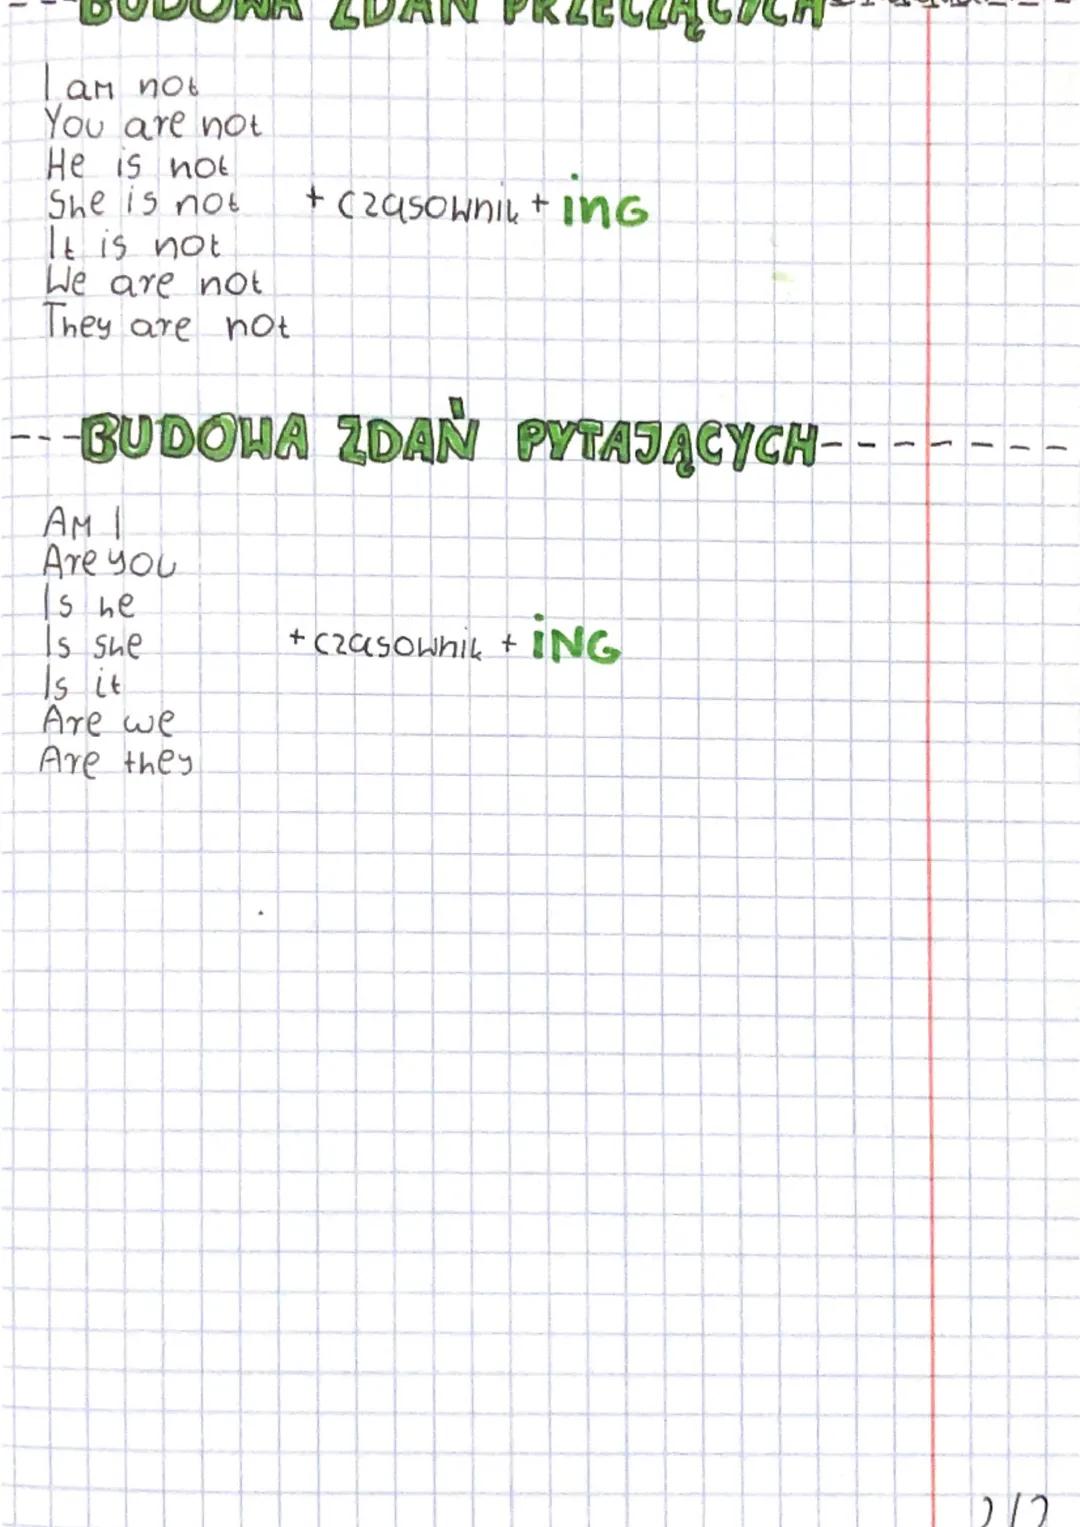 ---BUDOWA ZDAŃ PRZECZĄCYCH
I am not
You are not
He is not
She is not + czasownik + ing
It is not
We are not
They are not
---BUDOWA ZDAŃ PYTAJĄCYCH-------
Am I
Are you
Is he
Is she + czasownik + ING
Is it
Are we
Are they
2/2